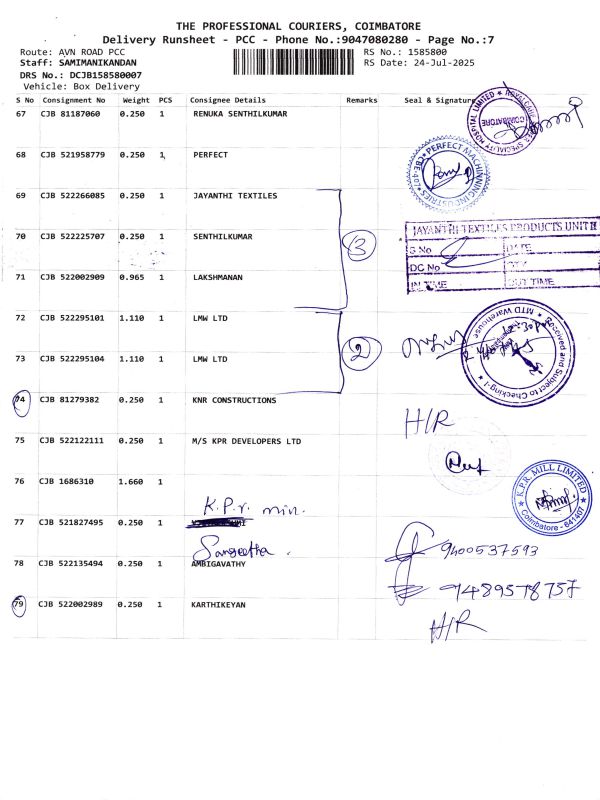 THE PROFESSIONAL COURIERS, COIMBATORE
Delivery Runsheet - PCC - Phone No.:9047080280 - Page No.:7
Route: AVN ROAD PCC
RS No.: 1585800
Staff: SAMIMANIKANDAN
RS Date: 24-Jul-2025
DRS No.: DCJB158580007
Vehicle: Box Delivery
S No Consignment No Weight PCS Consignee Details Remarks Seal & Signature
67 CJB 81187060 0.250 1 RENUKA SENTHILKUMAR
SPECIALITY HOSPITAL LIMITED ★ ROYAL CARE
COIMBATORE
68 CJB 521958779 0.250 1 PERFECT
PERFECT MACHINING INDUSTRIES
69 CJB 522266085 0.250 1 JAYANTHI TEXTILES
JAYANTHI TEXTILES PRODUCTS UNIT II
70 CJB 522225707 0.250 1 SENTHILKUMAR
3
S No DATE
DC No
71 CJB 522002909 0.965 1 LAKSHMANAN
IN TIME OUT TIME
72 CJB 522295101 1.110 1 LMW LTD
MTD Warehouse
Received and Subject to Checking-I
73 CJB 522295104 1.110 1 LMW LTD
2
74 CJB 81279382 0.250 1 KNR CONSTRUCTIONS
H/R
75 CJB 522122111 0.250 1 M/S KPR DEVELOPERS LTD
76 CJB 1686310 1.660 1
K.P.R. MILL LIMITED
Coimbatore - 641407
K.P.r. min.
77 CJB 521827495 0.250 1
Sangeetha.
9400537593
78 CJB 522135494 0.250 1 AMBIGAVATHY
9489578757
79 CJB 522002989 0.250 1 KARTHIKEYAN
H/R